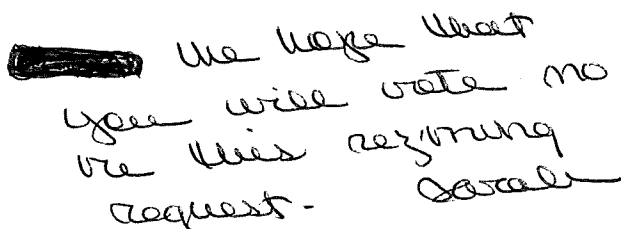 We hope that
you will vote no
on this rezoning
request. Sarah